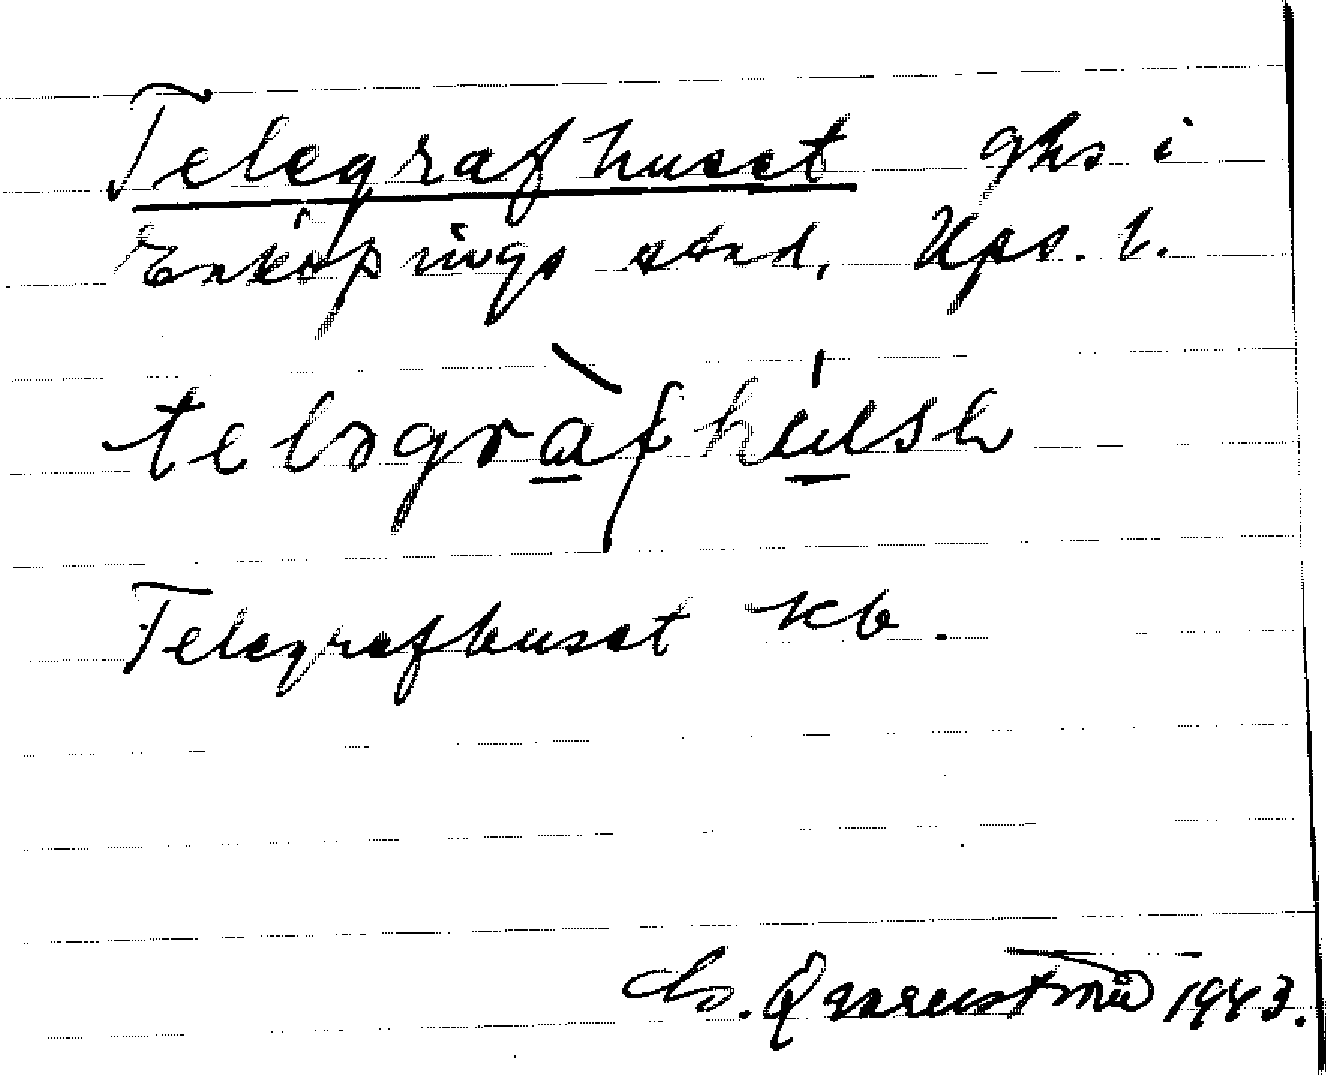 Telegrafhuset ghs i
Enköpings stad, Ups. l.
teləgràfhúsə
Telegrafhuset kb.
1943.